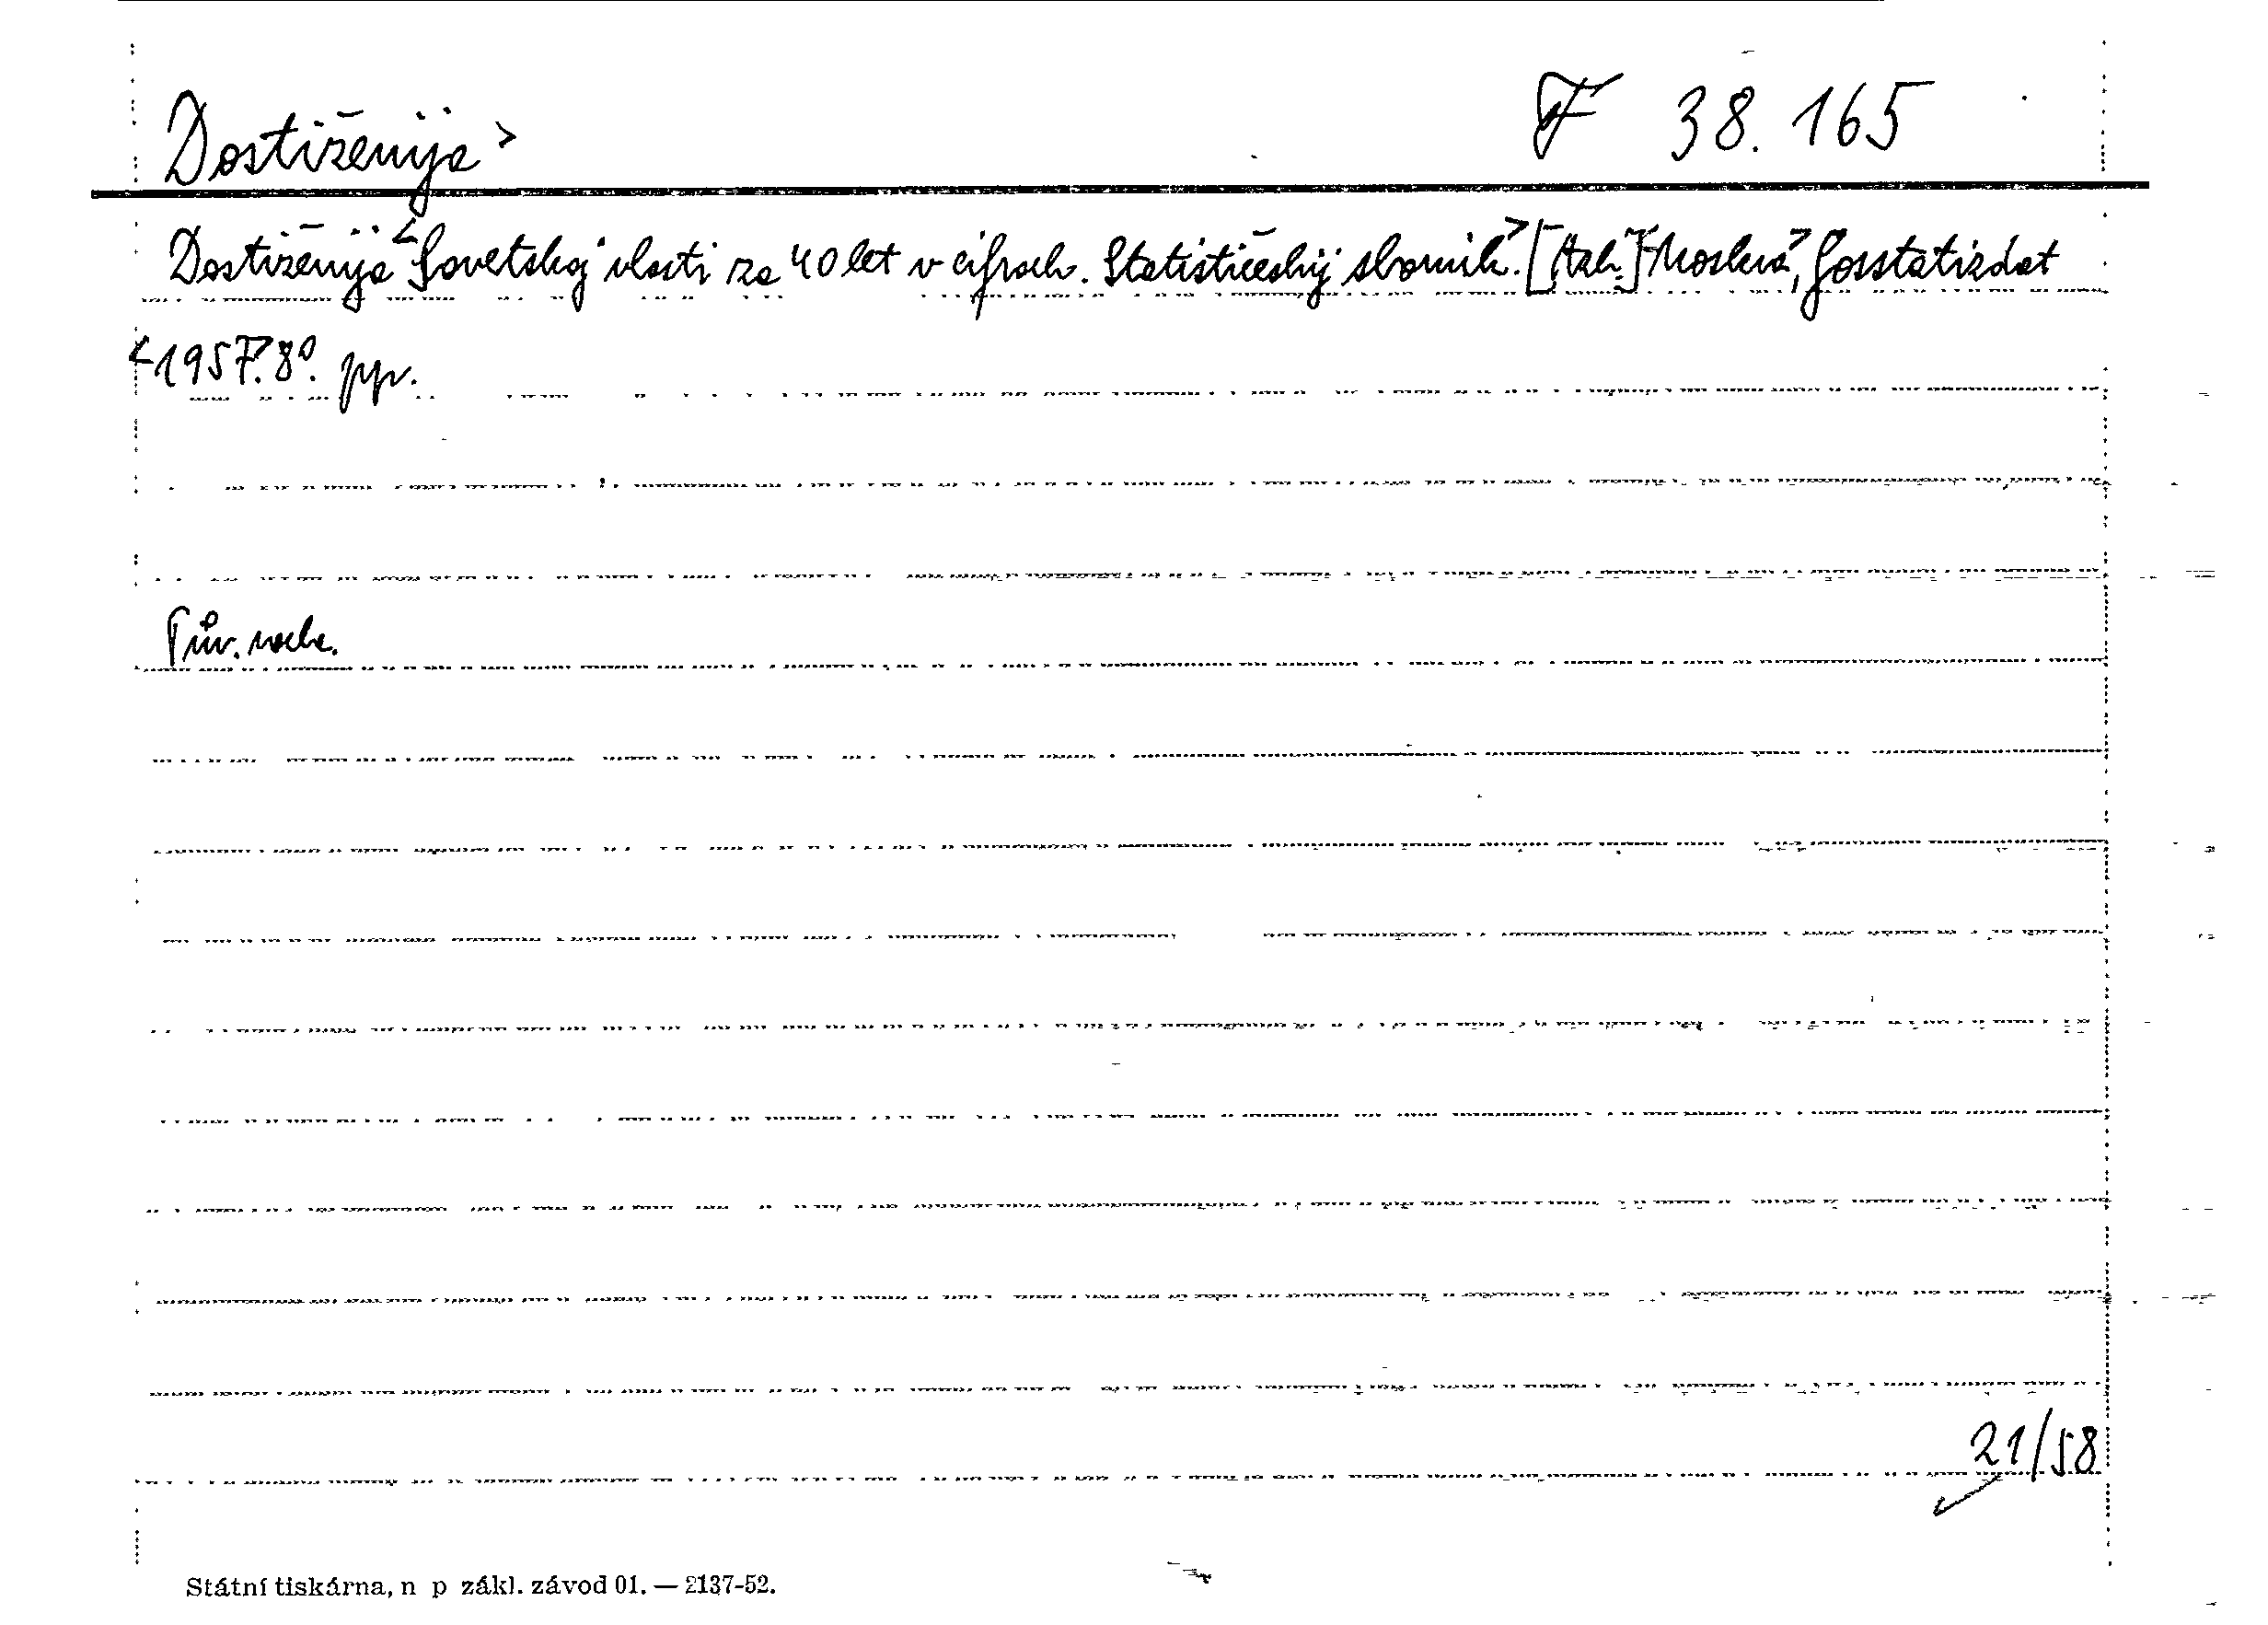 Dostiženija >
F 38.165
Dostiženija < Sovetskoj vlasti za 40 let v cifrach. Statističeskij sbornik >. [Azb.] Moskva >, Gosstatizdat
< 1957. 8°. pp.
Pův. vazba.
21/58
Státní tiskárna, n p zákl. závod 01. — 2137-52.